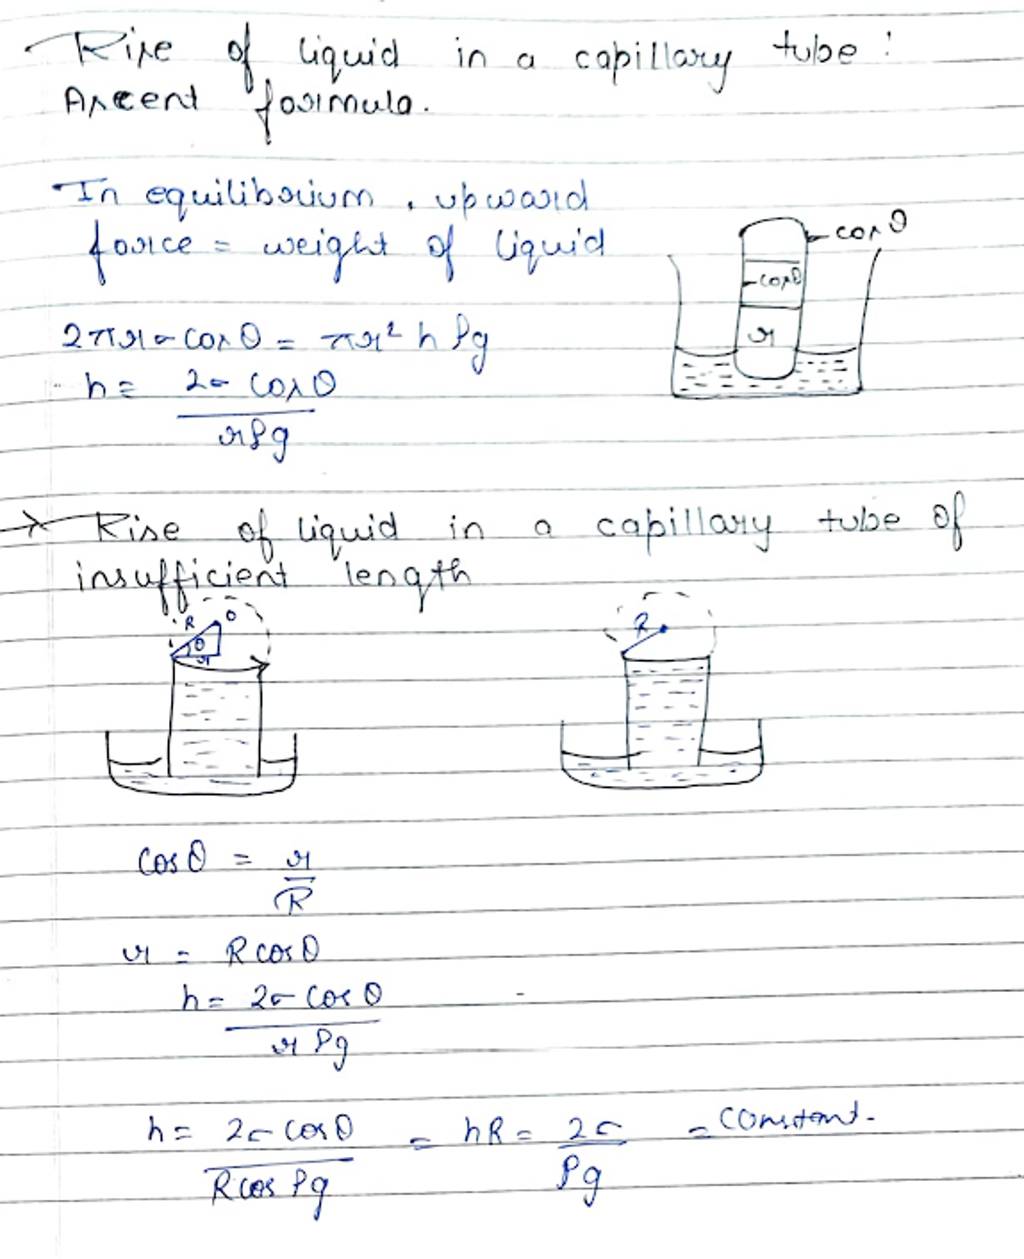 Rise of liquid in a capillary tube :
Ascent formula.
In equilibrium, upward
force = weight of liquid
cosθ
cosθ
r
2πrσ cosθ = πr² h ρg
h = 2σ cosθ
rρg
Rise of liquid in a capillary tube of
insufficient length
R O
θ
r
R
cosθ = r
R
r = R cosθ
h = 2σ cosθ
r ρg
h = 2σ cosθ = hR = 2σ = constant.
R cos ρg ρg